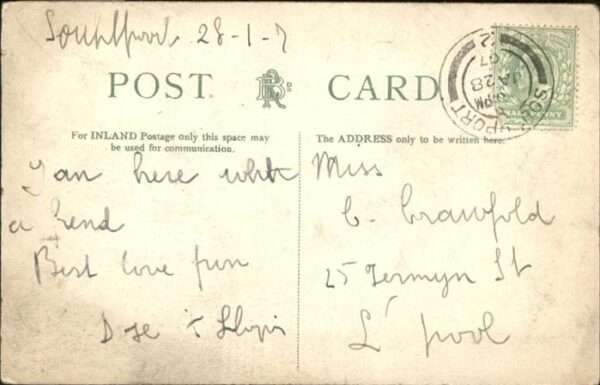 Southport 28-1-7
POST CARD
For INLAND Postage only this space may
be used for communication.
The ADDRESS only to be written here.
I am here with
a friend
Best love from
Miss
C. Crawford
25 Jermyn St
L'pool
SOUTHPORT
PM
JA 28
07